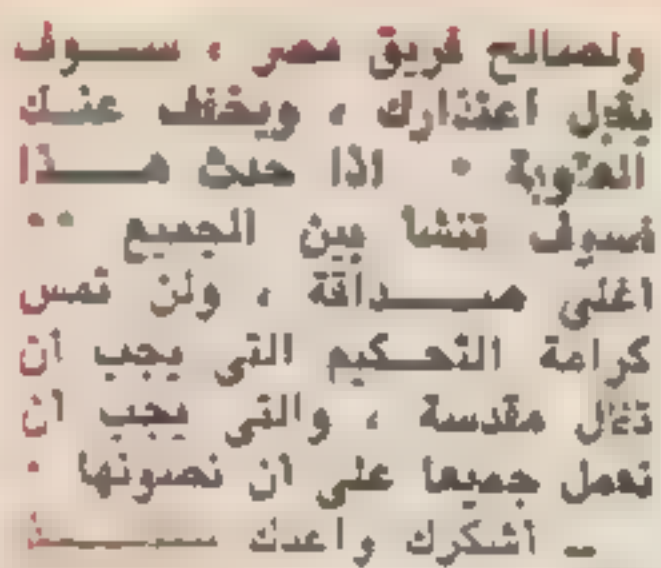 ولصالح فريق مصر ، سوف
يقبل اعتذارك ، ويخفف عنك
العقوبة . اذا حدث هذا
فسوف تنشأ بين الجميع ..
اغلى صداقة ، ولن تمس
كرامة التحكيم التى يجب ان
تظل مقدسة ، والتى يجب ان
نعمل جميعا على ان نصونها .
ــ اشكرك واعدك